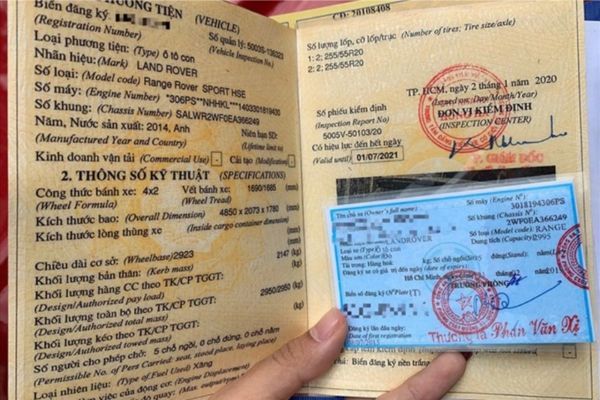 PHƯƠNG TIỆN (VEHICLE)
Biển đăng ký
(Registration Number)
Số quản lý: 5003S-136323
(Vehicle Inspection No.)
Loại phương tiện: (Type) ô tô con
Nhãn hiệu: (Mark) LAND ROVER
Số loại: (Model code) Range Rover SPORT HSE
Số máy: (Engine Number)
Số khung: (Chassis Number) SALWR2WF0EA366249
Năm, Nước sản xuất: 2014, Anh
(Manufactured Year and Country)
Niên hạn SD:
(Lifetime limit to)
Kinh doanh vận tải (Commercial Use) - Cải tạo (Modification) -
2. THÔNG SỐ KỸ THUẬT (SPECIFICATIONS)
Công thức bánh xe: 4x2 Vết bánh xe: 1690/1685 (mm)
(Wheel Formula) (Wheel Tread)
Kích thước bao: (Overall Dimension) 4850 x 2073 x 1780 (mm)
Kích thước lòng thùng xe: (mm)
(Inside cargo container dimension)
Chiều dài cơ sở: (Wheelbase) 2923 (mm)
Khối lượng bản thân: (Kerb mass) 2147 (kg)
Khối lượng hàng CC theo TK/CP TGGT:
(Design/Authorized pay load)
Khối lượng toàn bộ theo TK/CP TGGT: 2950/2950 (kg)
(Design/Authorized total mass)
Khối lượng kéo theo TK/CP TGGT:
(Design/Authorized towed mass)
Số người cho phép chở: 5 chỗ ngồi, 0 chỗ đứng, 0 chỗ nằm
(Permissible No. of Pers Carried: seat, stood place, laying place)
Loại nhiên liệu: (Type of Fuel Used) Xăng
(Engine Displacement)
CĐ: 20108408
Số lượng lốp, cỡ lốp/trục (Number of tires; Tire size/axle)
1: 2; 255/55R20
2: 2; 255/55R20
TP. HCM, ngày 2 tháng 1 năm 2020
(Issued on: Day/Month/Year)
Số phiếu kiểm định
(Inspection Report No)
5005V-50103/20
ĐƠN VỊ KIỂM ĐỊNH
(INSPECTION CENTER)
Có hiệu lực đến hết ngày
(Valid until) 01/07/2021
Tên chủ xe (Owner's full name)
Số máy (Engine N°)
3018194306PS
Số khung (Chassis N°)
2WF0EA366249
LANDROVER
Số loại (Model code): RANGE
Loại xe (Type) ô tô con
Dung tích (Capacity) 2995
Màu sơn (Color)
Tải trọng: Hàng hoá:
Số chỗ ngồi
Đăng ký xe có giá trị đến ngày (date of expiry)
Biển số đăng ký
TRƯỞNG PHÒNG
Đăng ký lần đầu ngày:
Date of first registration
Thượng tá Phan Văn
Chú: Biển đăng ký nền trắng